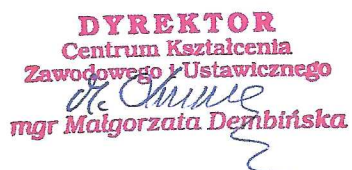 DYREKTOR
Centrum Kształcenia
Zawodowego i Ustawicznego
mgr Małgorzata Dembińska